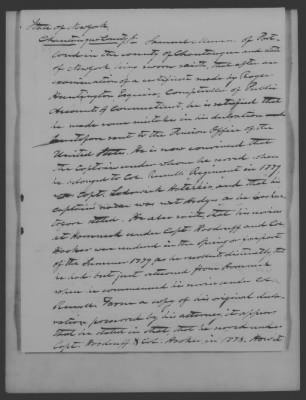 State of New York
Chautauque County ss Samuel Munn of Port-
land in the county of Chautauque and State
of New York being sworn saith, that after an
examination of a certificate made by Roger
Huntington Esquire, Comptroller of Public
Accounts of Connecticut, he is satisfied that
he made some mistakes in his declaration
heretofore sent to the Pension Office of the
United States. He is now convinced that
the Captain under whom he served when
he belonged to Col. Russell Regiment in 1779
Capt. Ladowick Hotchkiss, and that his
captain's name was not Hodge as he has here-
tofore stated. He also saith, that his service
at Horseneck under Capt. Woodruff and Col.
Hooker was rendered in the Spring or forepart
of the Summer 1779, as he recollects distinctly, that
he had but just returned from Horseneck
when he commenced his service under Col.
Russell. From a copy of his original decla-
ration preserved by his attorney it appears
that he stated in that, that he served under
Capt. Woodruff & Col. Hooker in 1778. How it